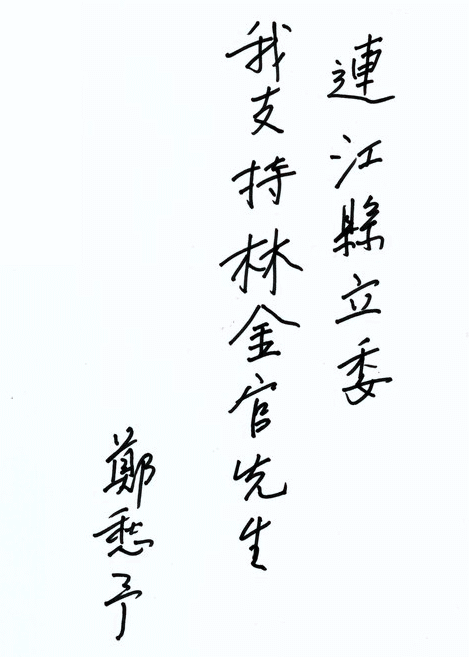 連江縣立委
我支持林金官先生
鄭愁予